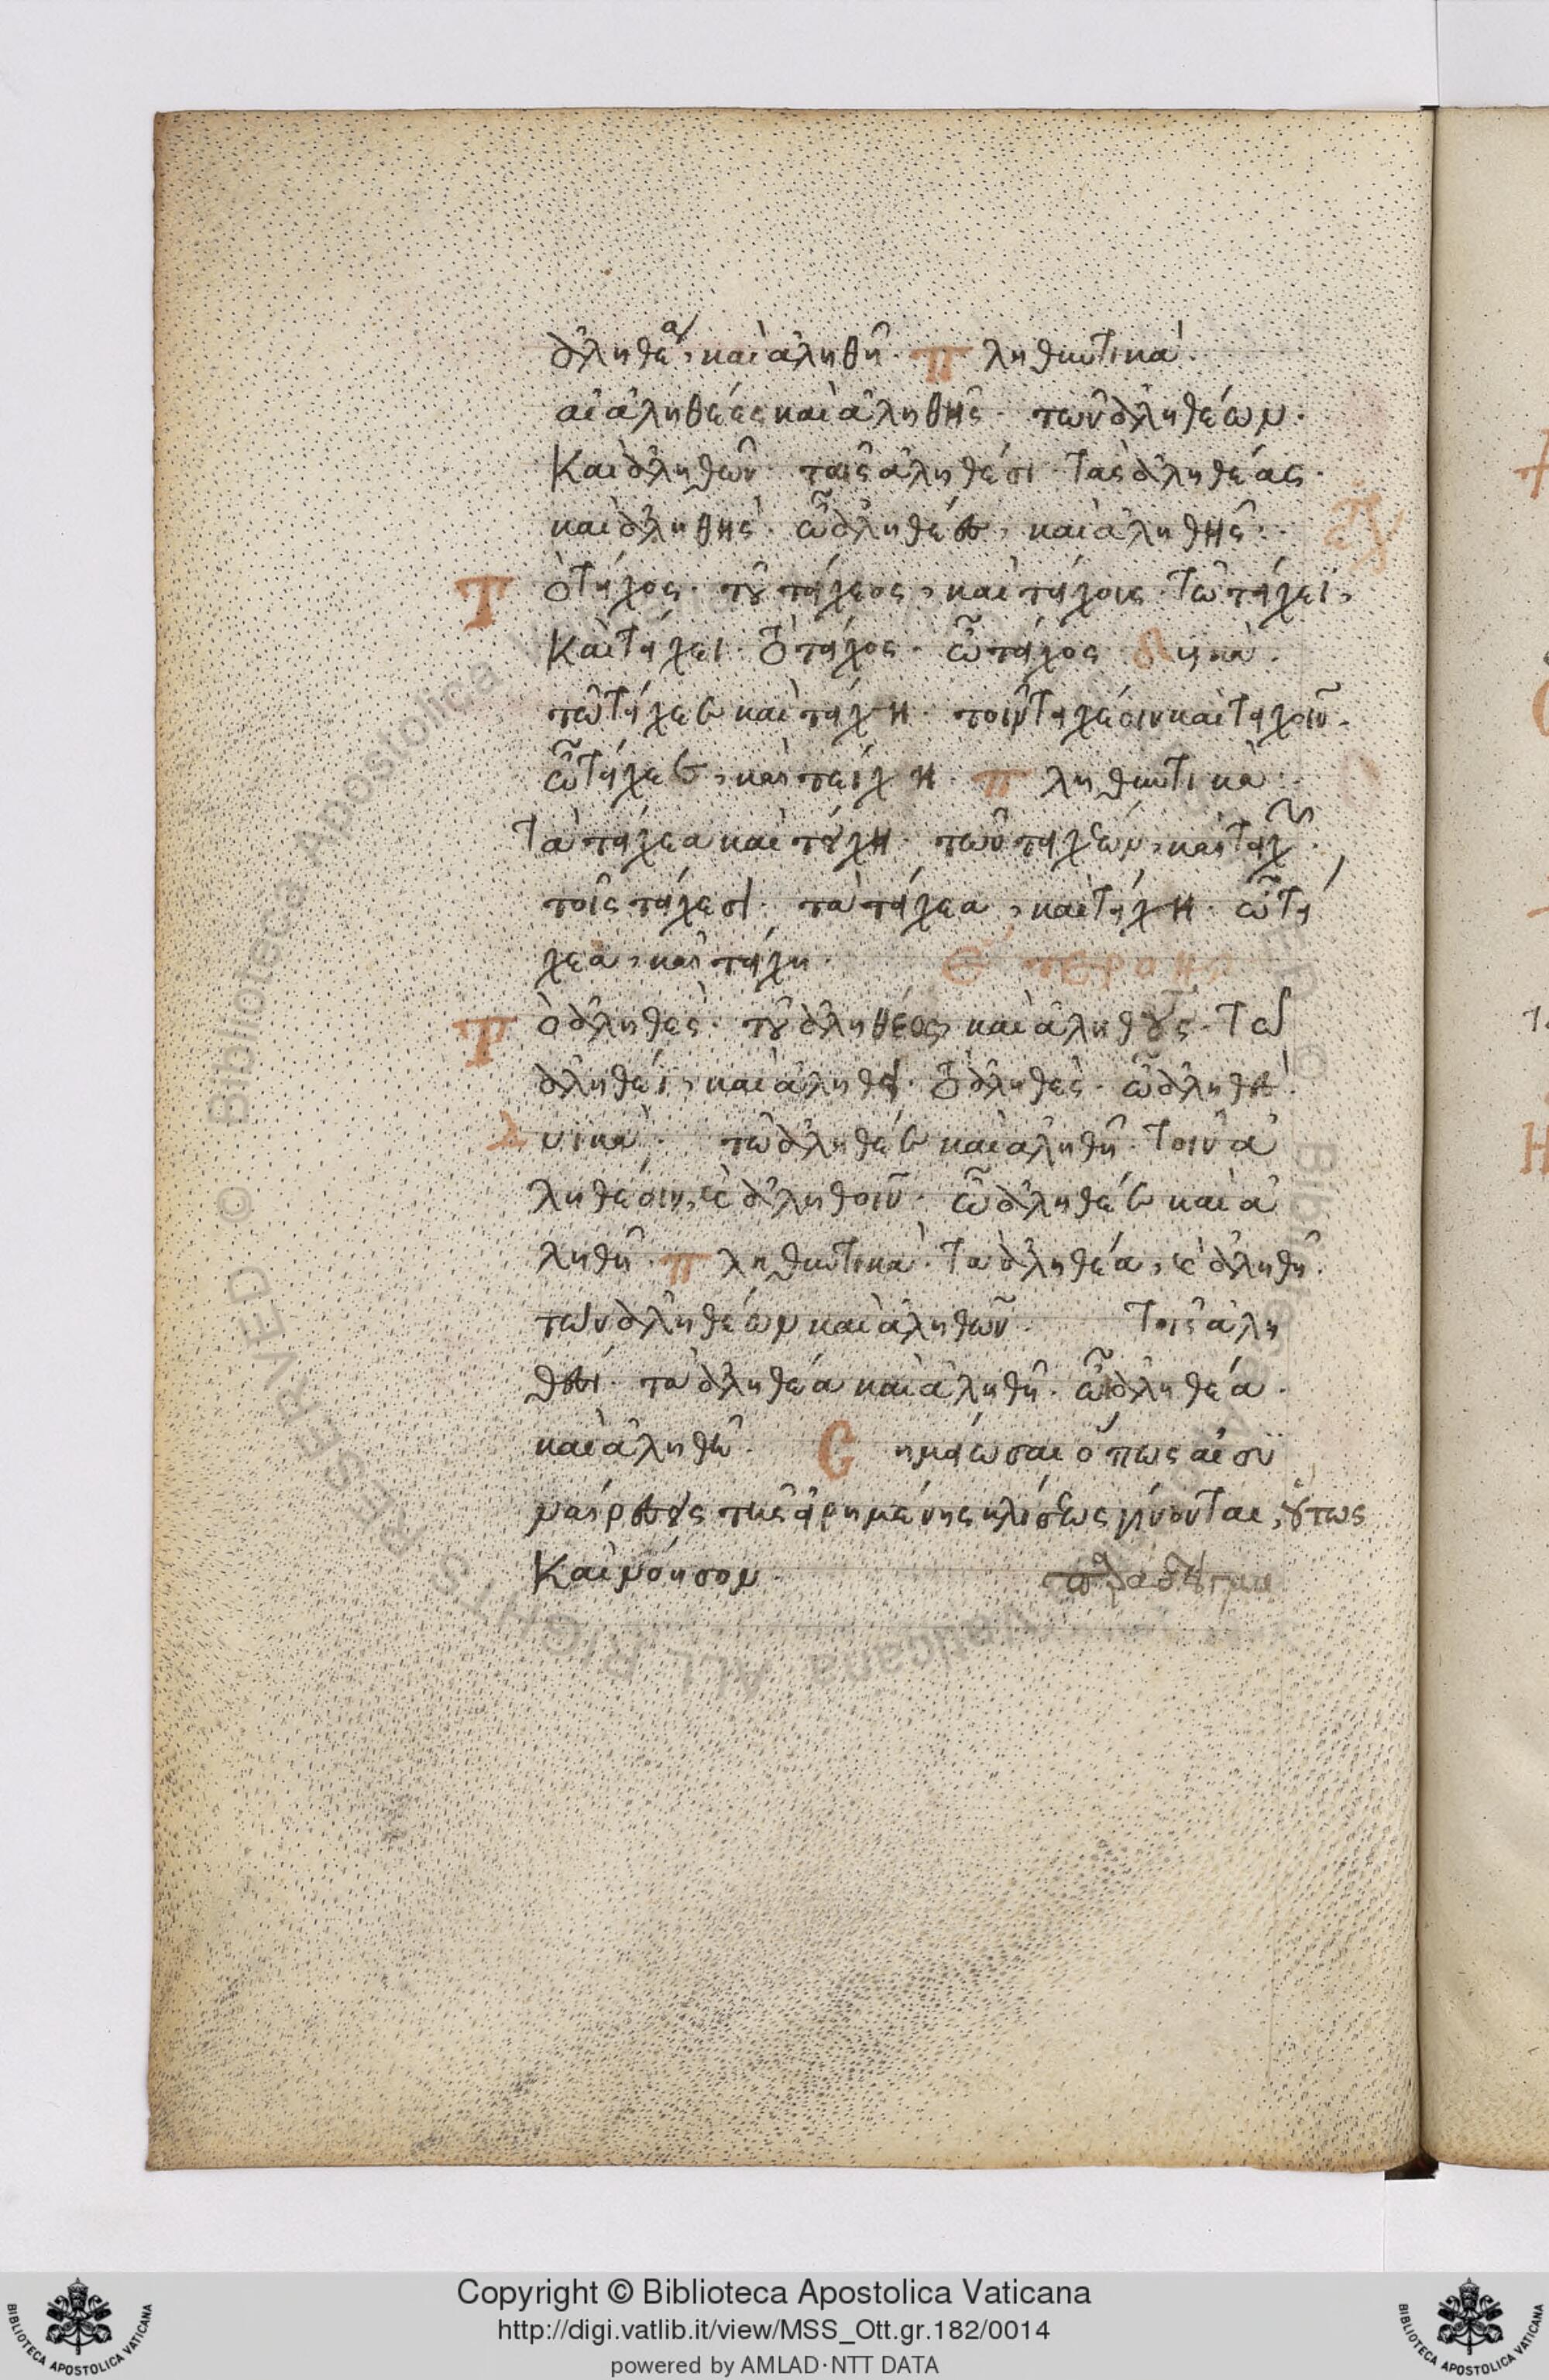 ἀληθέα, καὶ ἀληθῆ. Πληθυντικά.
αἱ ἀληθέες καὶ ἀληθῆς. τῶν ἀληθέων.
καὶ ἀληθῶν. ταῖς ἀληθέσι. τὰς ἀληθέας.
καὶ ἀληθῆς. ὦ ἀληθέες, καὶ ἀληθῆς:
Τὸ τεῖχος. τοῦ τείχεος, καὶ τείχους. τῷ τείχεϊ,
καὶ τείχει. τὸ τεῖχος. ὦ τεῖχος. Δυικά.
τὼ τείχεε καὶ τείχη. τοῖν τειχέοιν καὶ τειχοῖν.
ὦ τείχεε, καὶ τείχη. Πληθυντικά.
τὰ τείχεα καὶ τείχη. τῶν τειχέων, καὶ τειχῶν.
τοῖς τείχεσι. τὰ τείχεα, καὶ τείχη. ὦ τεί
χεα, καὶ τείχη.
Τὸ ἀληθές. τοῦ ἀληθέος, καὶ ἀληθοῦς. τῷ
ἀληθέϊ, καὶ ἀληθεῖ. τὸ ἀληθές. ὦ ἀληθές.
Δυικά. τὼ ἀληθέε καὶ ἀληθῆ. τοῖν ἀ
ληθέοιν, καὶ ἀληθοῖν. ὦ ἀληθέε καὶ ἀ
ληθῆ. Πληθυντικά. τὰ ἀληθέα, καὶ ἀληθῆ.
τῶν ἀληθέων καὶ ἀληθῶν. τοῖς ἀλη
θέσι. τὰ ἀληθέα καὶ ἀληθῆ. ὦ ἀληθέα.
καὶ ἀληθῆ. Σημείωσαι ὅπως αἱ συ
ναιρέσεις τῆς εἰρημένης κλίσεως γίνονται, οὕτως
καὶ νόησον.
Copyright © Biblioteca Apostolica Vaticana
http://digi.vatlib.it/view/MSS_Ott.gr.182/0014
powered by AMLAD·NTT DATA